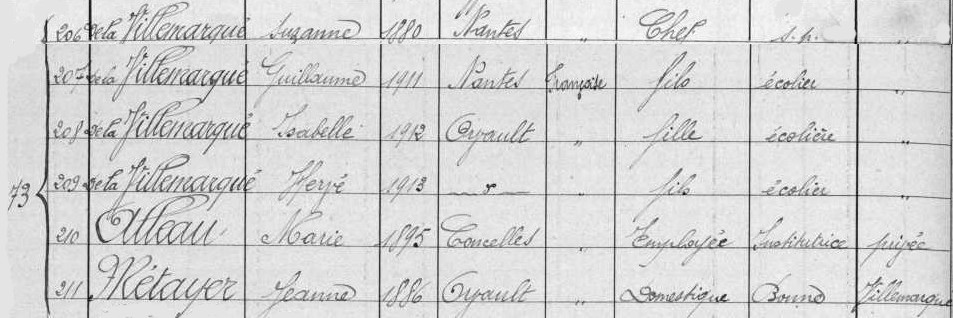 206 de la Villemarqué Suzanne 1880 Nantes " Chef s.p. "
207 de la Villemarqué Guillaume 1911 Nantes Française fils écolier "
208 de la Villemarqué Isabelle 1912 Oyault " fille écolière "
73 209 de la Villemarqué Hervé 1913 — d° — fils écolier "
210 Alleau Marie 1895 Concelles " Employée Institutrice privée
211 Métayer Jeanne 1886 Oyault " Domestique Bonne Villemarqué